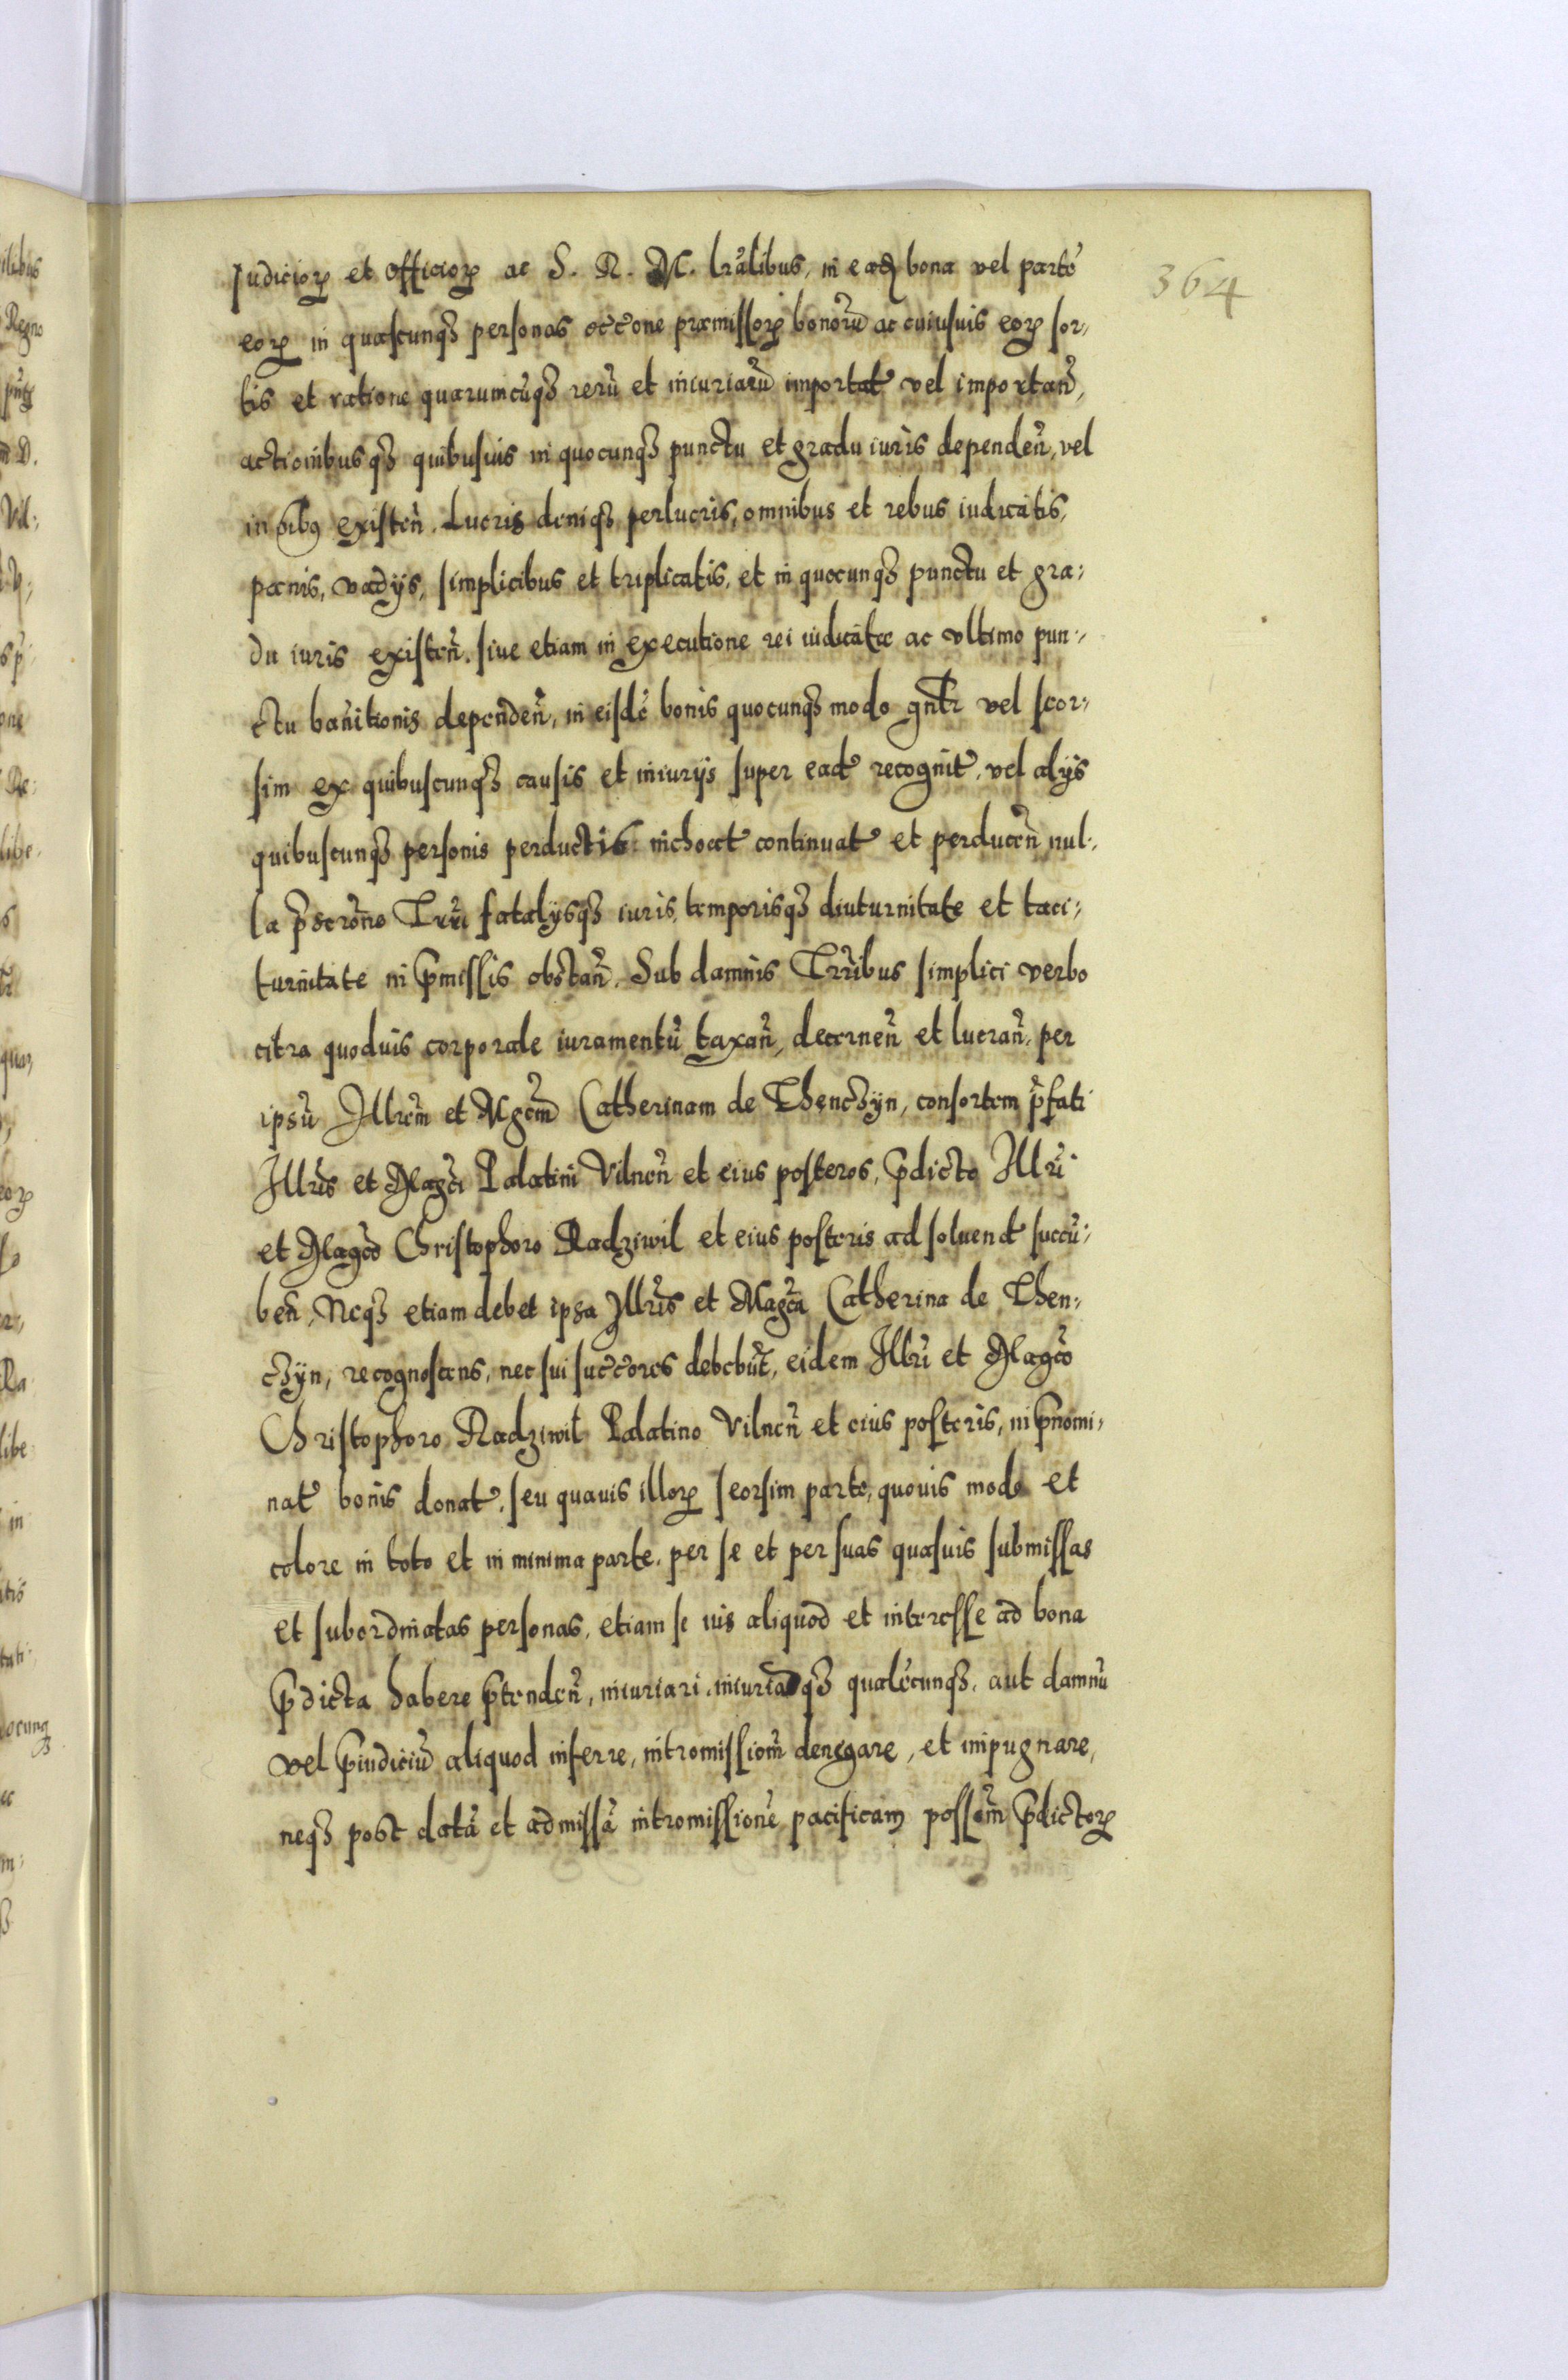 364
Judicioꝝ et officioꝝ ac S. R. M. lrãlibus, in eadẽ bona vel partẽ
eoꝝ in quascunqꝫ personas occ̃one præmissoꝝ bonorũ ac cuiusuis eoꝝ sor⸗
tis et ratione quarumcũqꝫ rerũ et iniuriarũ importat̃ vel importan̄,
actionibusqꝫ quibusuis in quocunqꝫ punctu et gradu iuris dependen̄, vel
in existen̄. Lucris deniqꝫ perlucris, omnibus et rebus iudicatis,
pœnis, vadijs, simplicibus et triplicatis, et in quocunqꝫ punctu et gra⸗
du iuris existen̄. siue etiam in executione rei iudicatæ ac vltimo pun⸗
ctu bañitionis dependen̄, in eisdẽ bonis quocunqꝫ modo gñlr vel seor⸗
sim ex quibuscunqꝫ causis et iniurijs super ead̃ recognit̃, vel alijs
quibuscunqꝫ personis perductis inchoat̃ continuat̃ et perducen̄ nul⸗
la p̃scrõne Trr̃i fatalijsqꝫ iuris, temporisqꝫ diuturnitate et taci⸗
turnitate in p̃missis obstan̄. Sub damnis Trr̃ibus simplici verbo
citra quoduis corporale iuramentũ taxan̄, decernen̄ et lucran̄, per
ipsũ Illrem̃ et Mgcm̃ Catherinam de Thenczyn, consortem p̃fati
Illris̃ et Magci̇̃ Palatini Vilnen̄ et eius posteros, p̃dicto Illri̇̃
et Magco̊̃ Christophoro Radziwil et eius posteris ad soluend̃ succũ⸗
ben̄, Neqꝫ etiam debet ipsa Illris̃ et Magcã Catherina de Then⸗
czyn, recognoscens, nec sui succ̃ores debebũt, eidem Illri̇̃ et Magcõ
Christophoro Radziwil Palatino Vilnen̄ et eius posteris, in p̃nomi⸗
nat̃ bonis donat̃, seu quauis illoꝝ seorsim parte, quouis modo et
colore in toto et in minima parte, per se et per suas quasuis submissas
et subordinatas personas, etiam se ius aliquod et interesse ad bona
p̃dicta habere p̃tenden̄, iniuriari, iniuriãqꝫ qualẽcunqꝫ, aut damnũ
vel p̃iudiciũ aliquod inferre, intromissionẽ denegare, et impugnare,
neqꝫ post datã et admissã intromissionẽ pacificam possem̃ p̃dictoꝝ